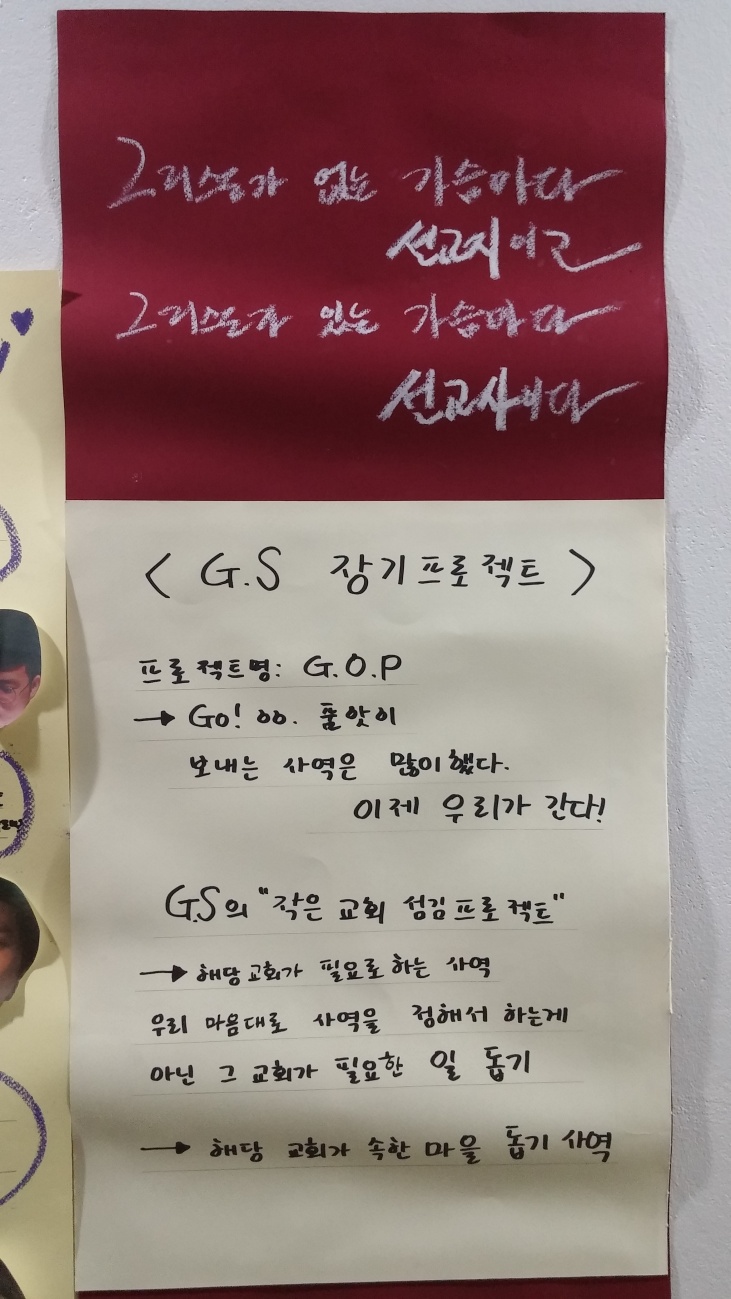 그리스도가 없는 가슴마다
선교지이고
그리스도가 있는 가슴마다
선교사이다
< G.S 장기프로젝트 >
프로젝트명: G.O.P
→ Go! oo. 품앗이
보내는 사역은 많이했다.
이제 우리가 간다!
G.S의 "작은 교회 섬김프로젝트"
→ 해당교회가 필요로하는 사역
우리 마음대로 사역을 정해서 하는게
아닌 그 교회가 필요한 일 돕기
→ 해당 교회가 속한 마을 돕기 사역